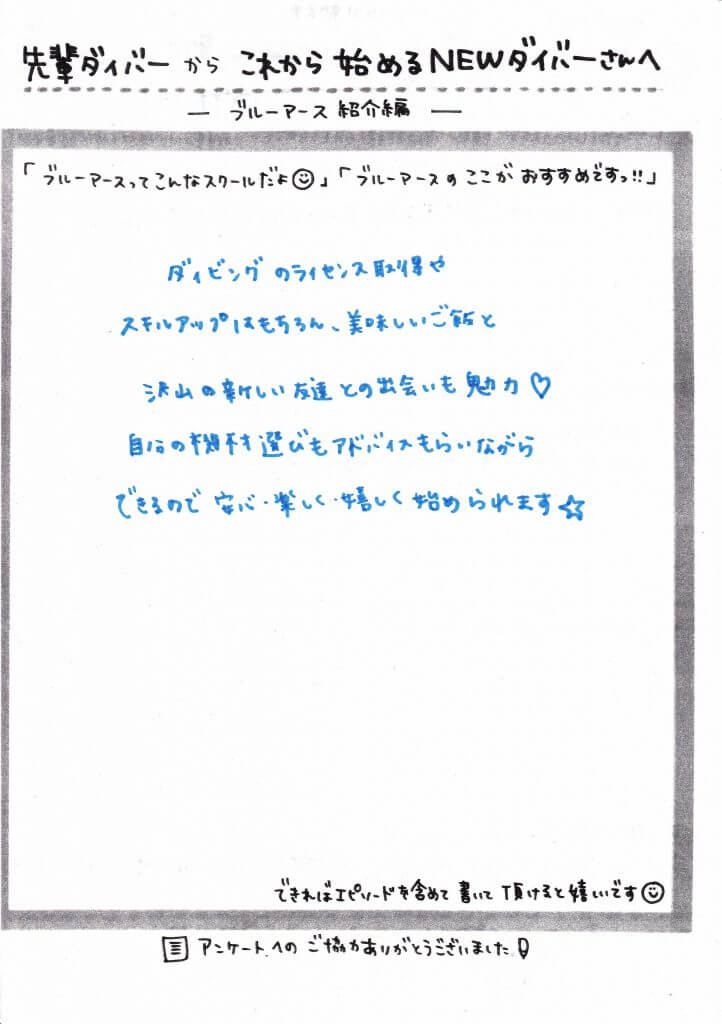 先輩ダイバーから これから始めるNEWダイバーさんへ
― ブルーアース紹介編 ―
「ブルーアースってこんなスクールだよ☺」「ブルーアースのここがおすすめですっ!!」
ダイビングのライセンス取得や
スキルアップはもちろん、美味しいご飯と
沢山の新しい友達との出会いも魅力♡
自分の機材選びもアドバイスもらいながら
できるので安心・楽しく・嬉しく始められます☆
できればエピソードを含めて書いて頂けると嬉しいです☺
アンケートへのご協力ありがとうございました